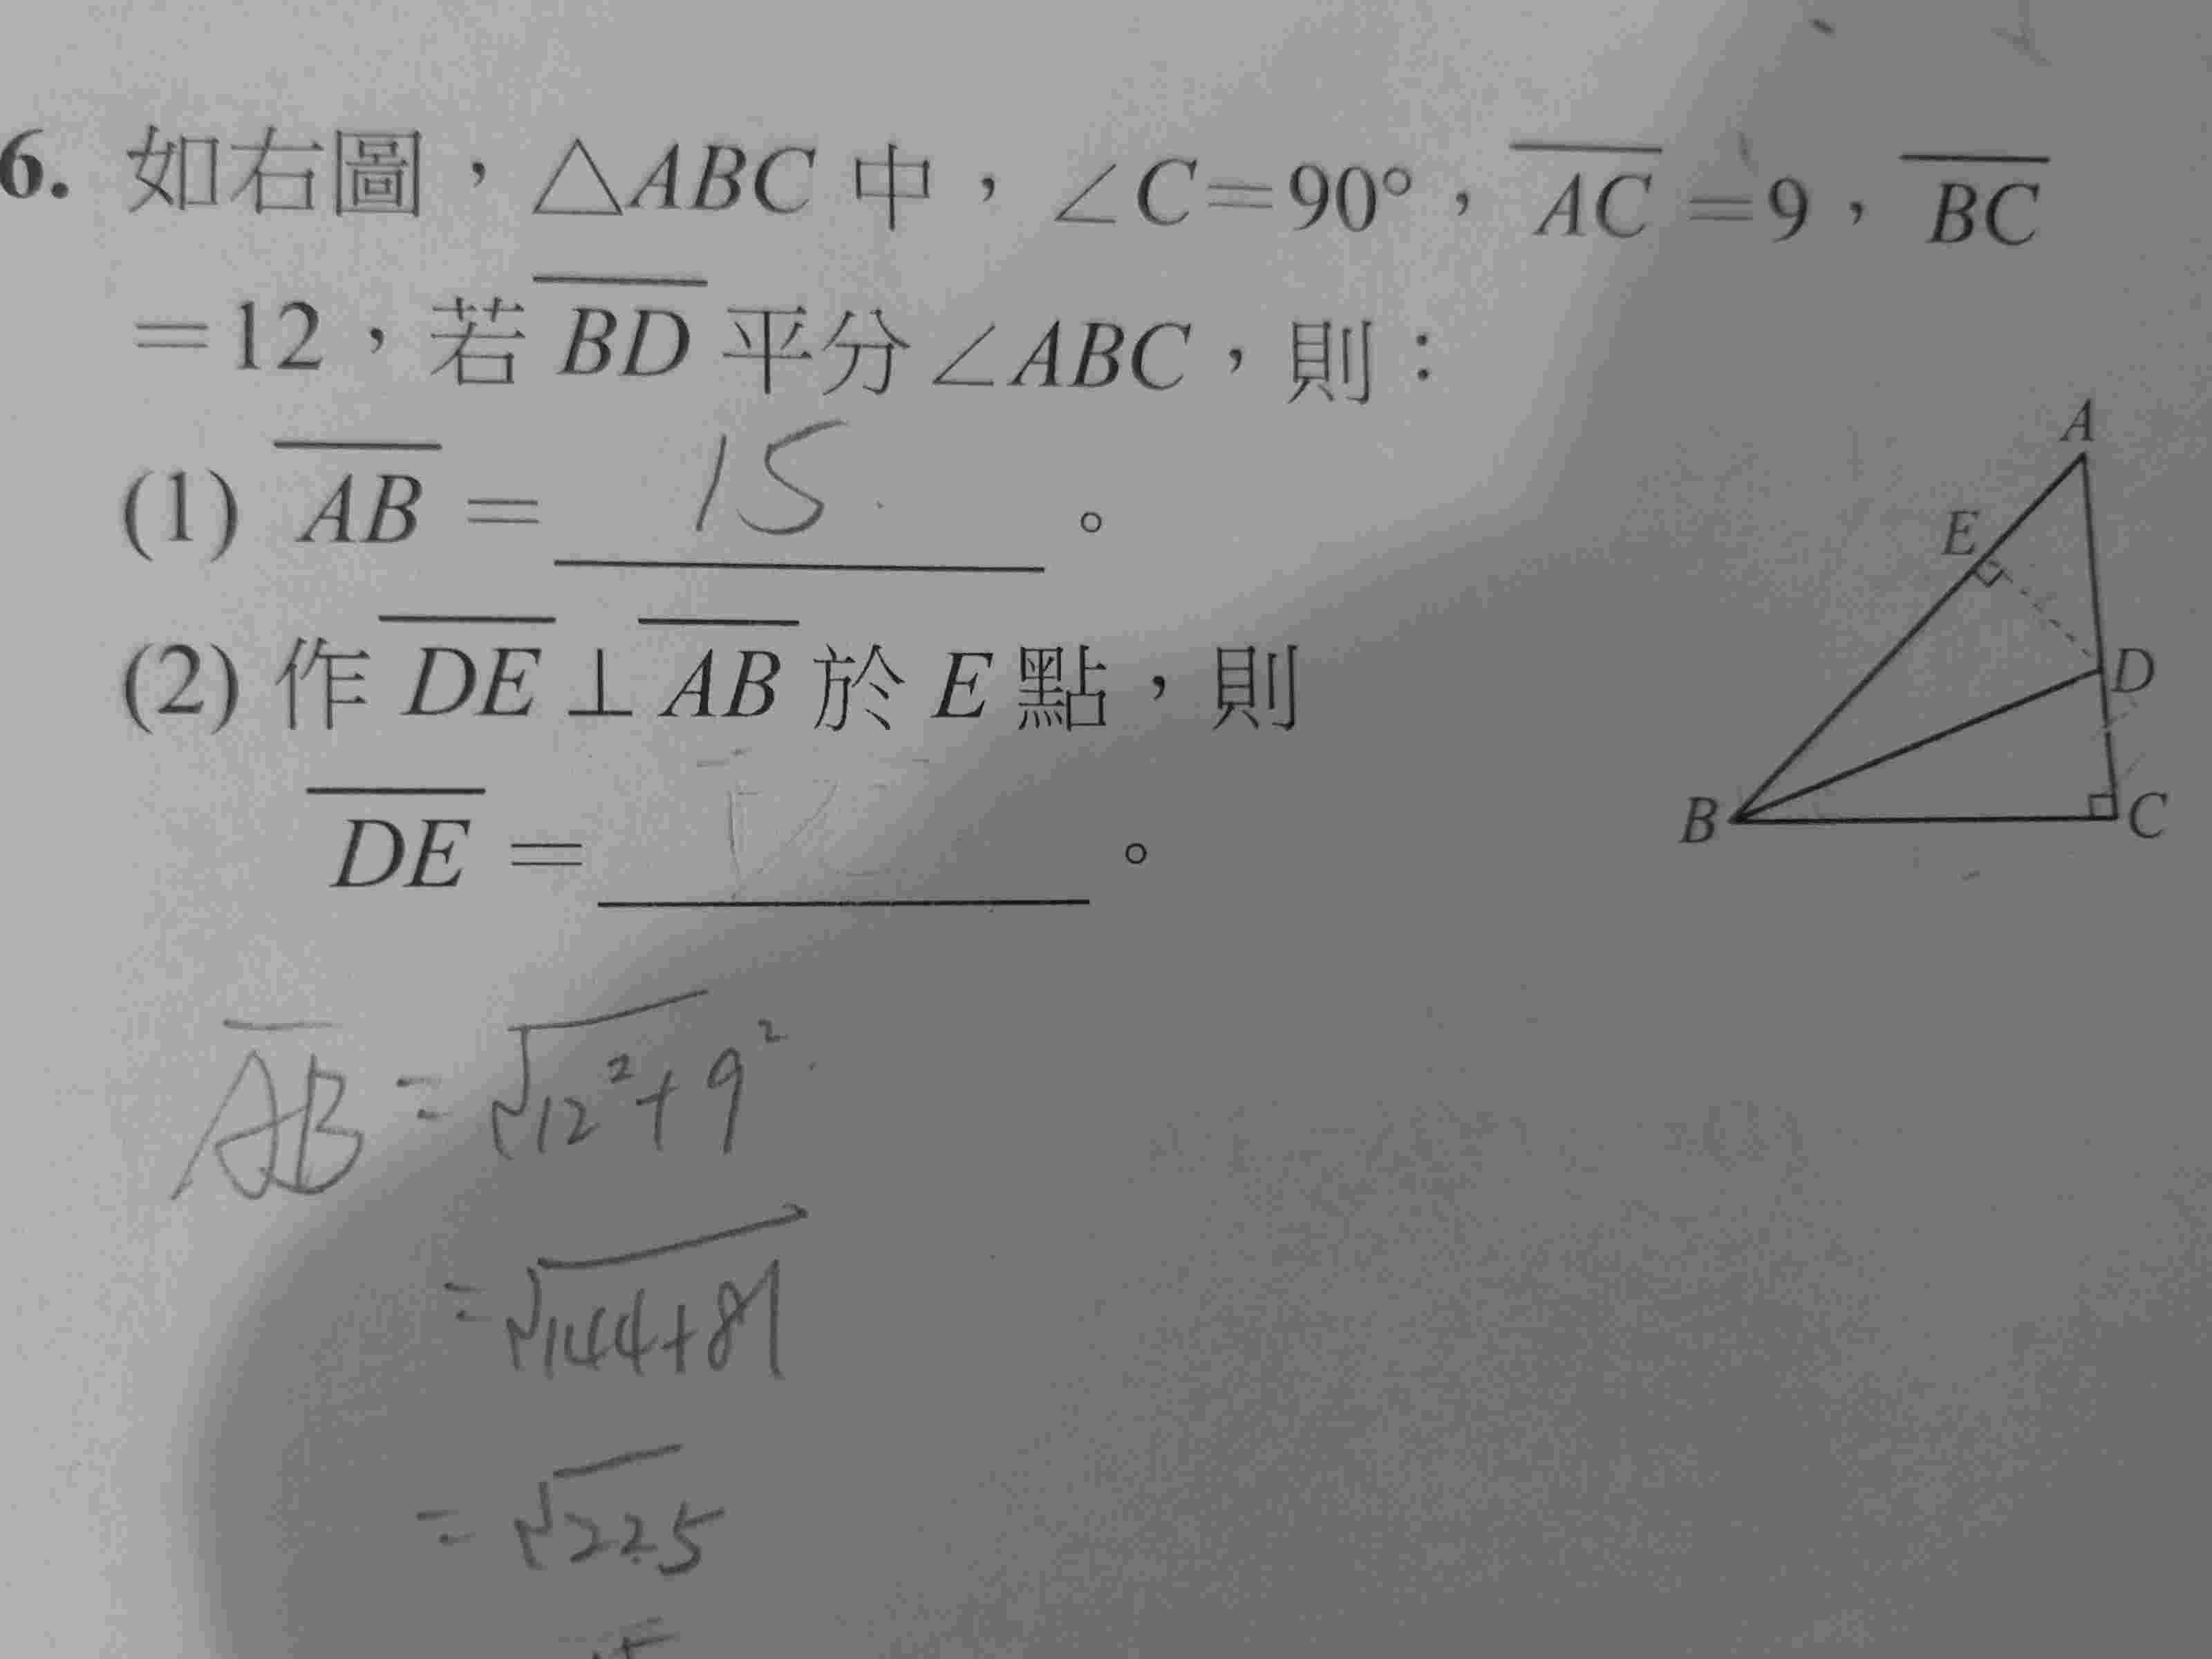 6. 如右圖，△ABC 中，∠C=90°，AC=9，BC
=12，若 BD 平分∠ABC，則：
(1) AB = 15 。
(2) 作 DE⊥AB 於 E 點，則
DE = 。
A
E
D
B
C
AB = √12²+9²
= √144+81
= √225